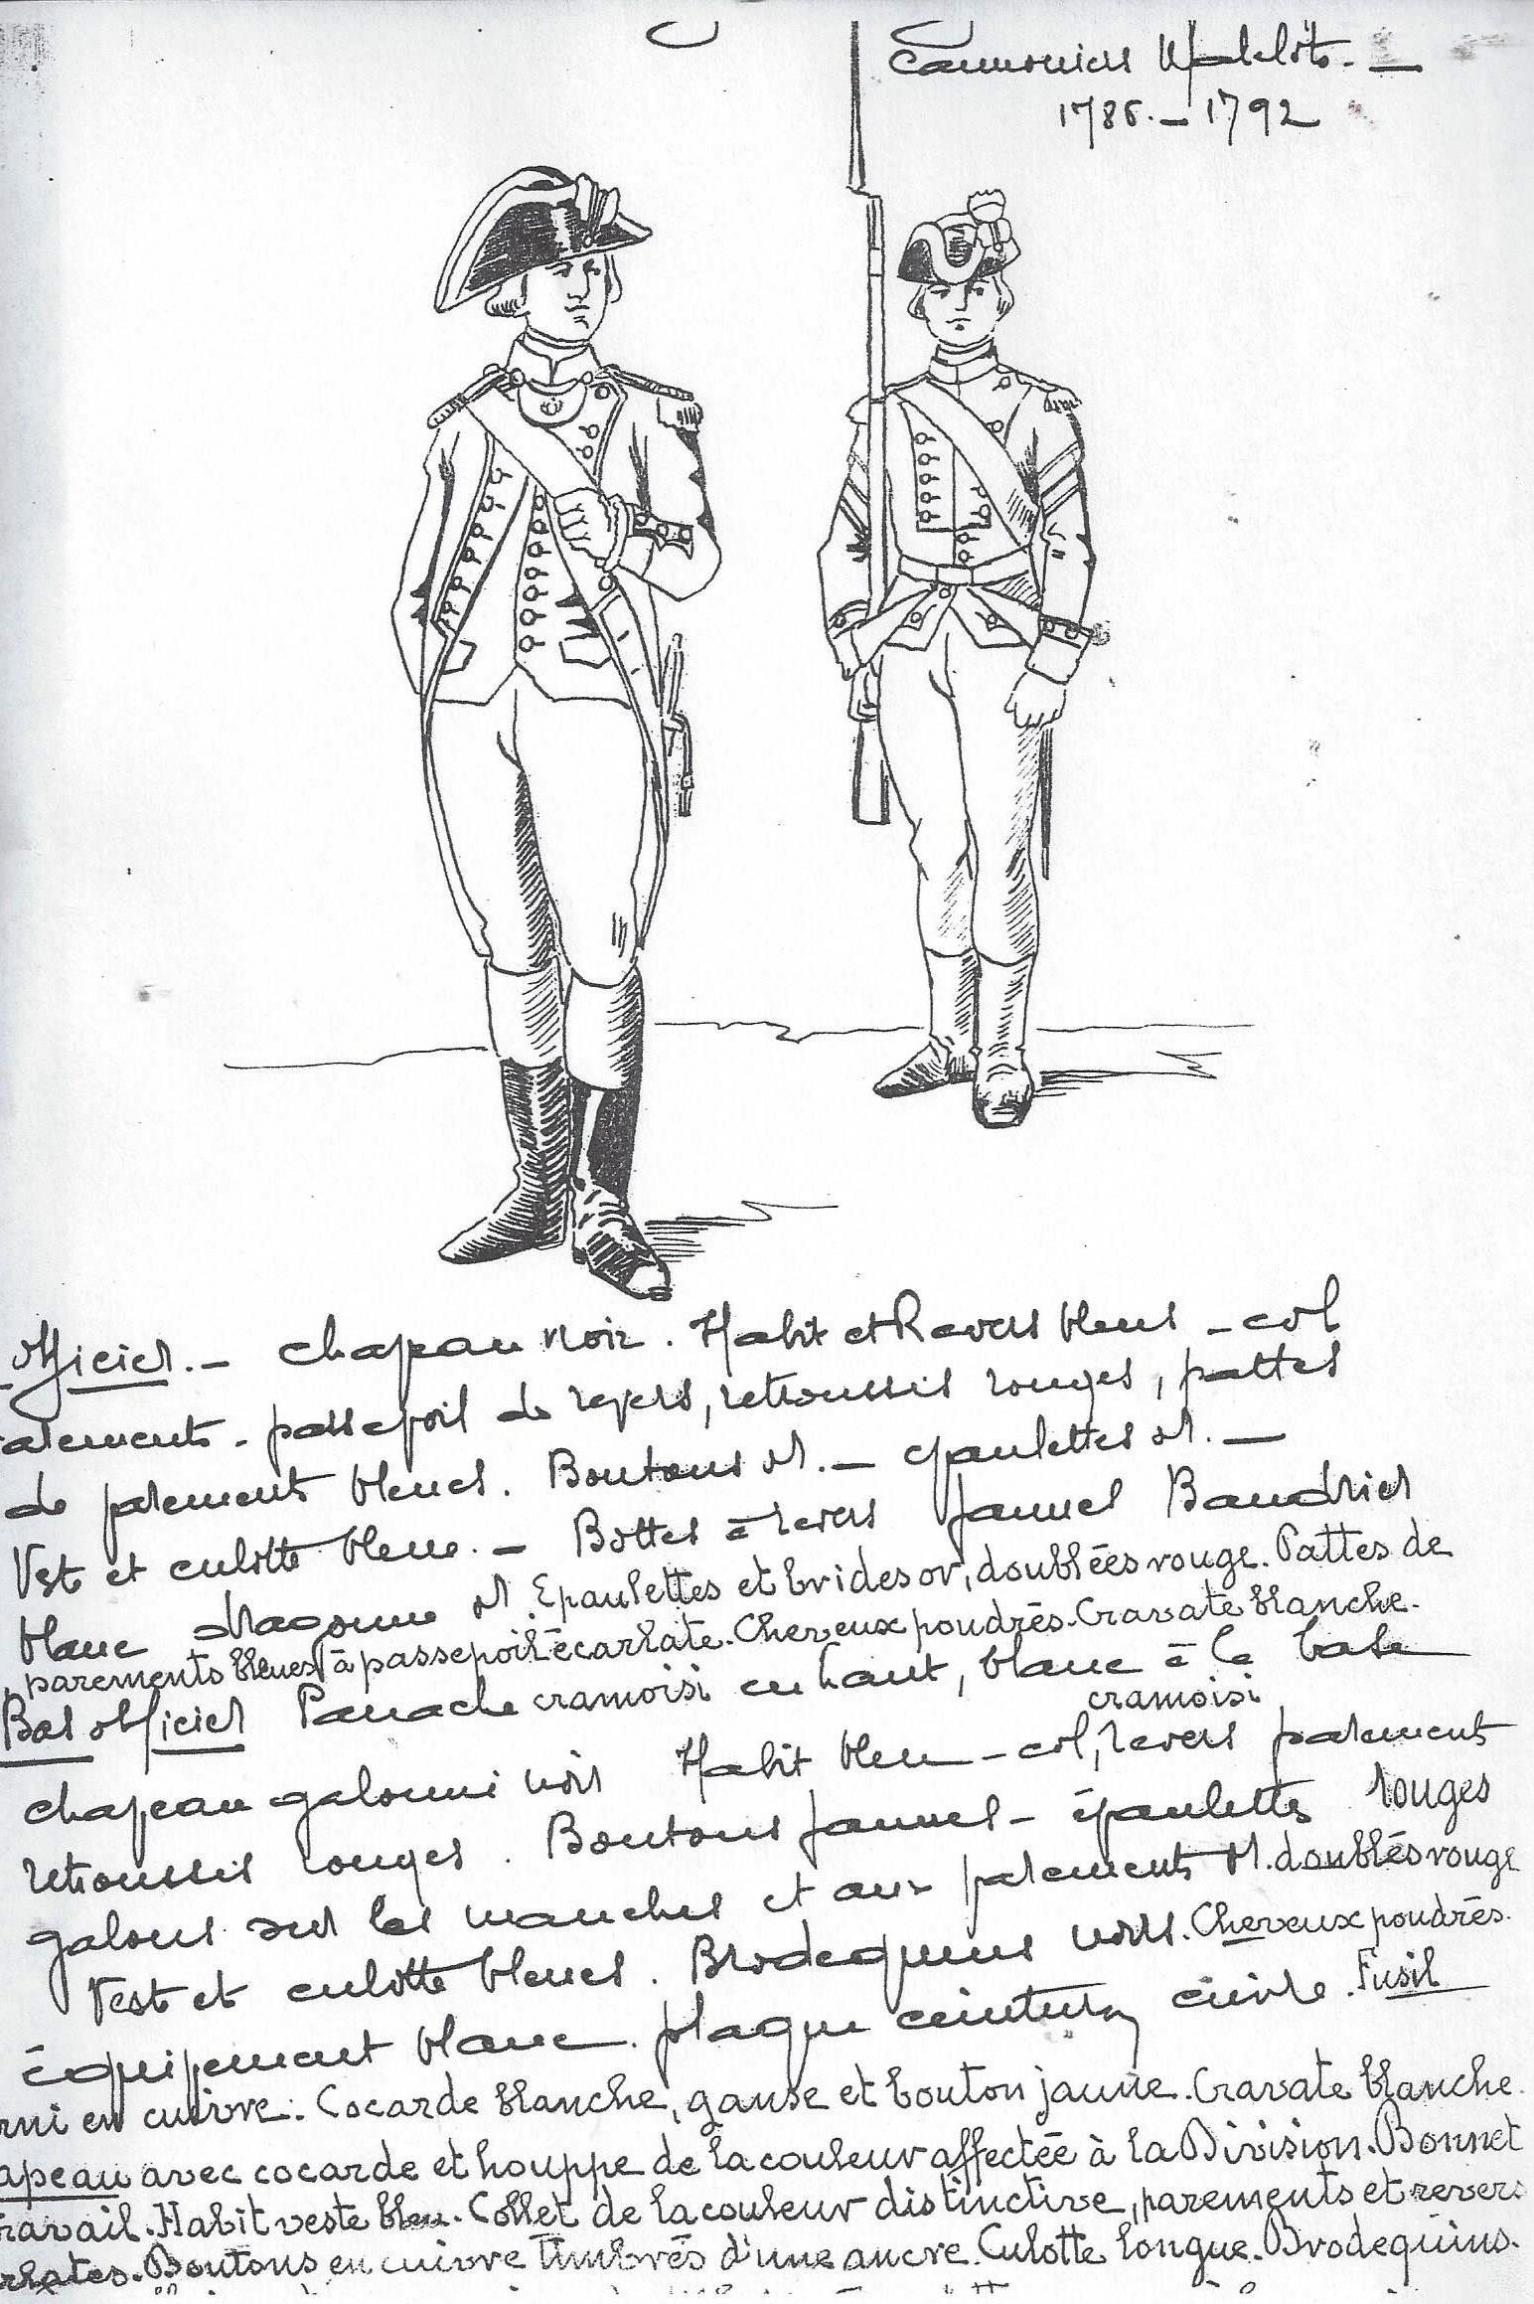 Canonniers Matelots. —
1786. — 1792
Officier. — chapeau noir. Habit et Revers bleus — col
arements. passepoil de revers, retroussis rouges, pattes
de parements bleues. Boutons or. — epaulettes or. —
Veste et culotte bleue. — Bottes à revers jaunes Baudrier
blanc dragonne or Epaulettes et brides or, doublées rouge. Pattes de
parements bleues à passepoil écarlate. Cheveux poudrés. Cravate blanche.
Bas officier Panache cramoisi en haut, blanc à la base
cramoisi
chapeau galonné noir Habit bleu — col, revers parement
retroussis rouges. Boutons jaunes — épaulettes rouges
galons sur les manches et aux parements or. doublés rouge
Veste et culotte bleues. Brodequins noirs. Cheveux poudrés.
équipement blanc. plaque ceinturon cuivre. Fusil
rni en cuivre. Cocarde blanche, ganse et bouton jaune. Cravate blanche.
apeau avec cocarde et houppe de la couleur affectée à la Division. Bonnet
ravail. Habit veste bleu. Collet de la couleur distinctive, parements et revers
rlates. Boutons en cuivre timbrés d'une ancre. Culotte longue. Brodequins.